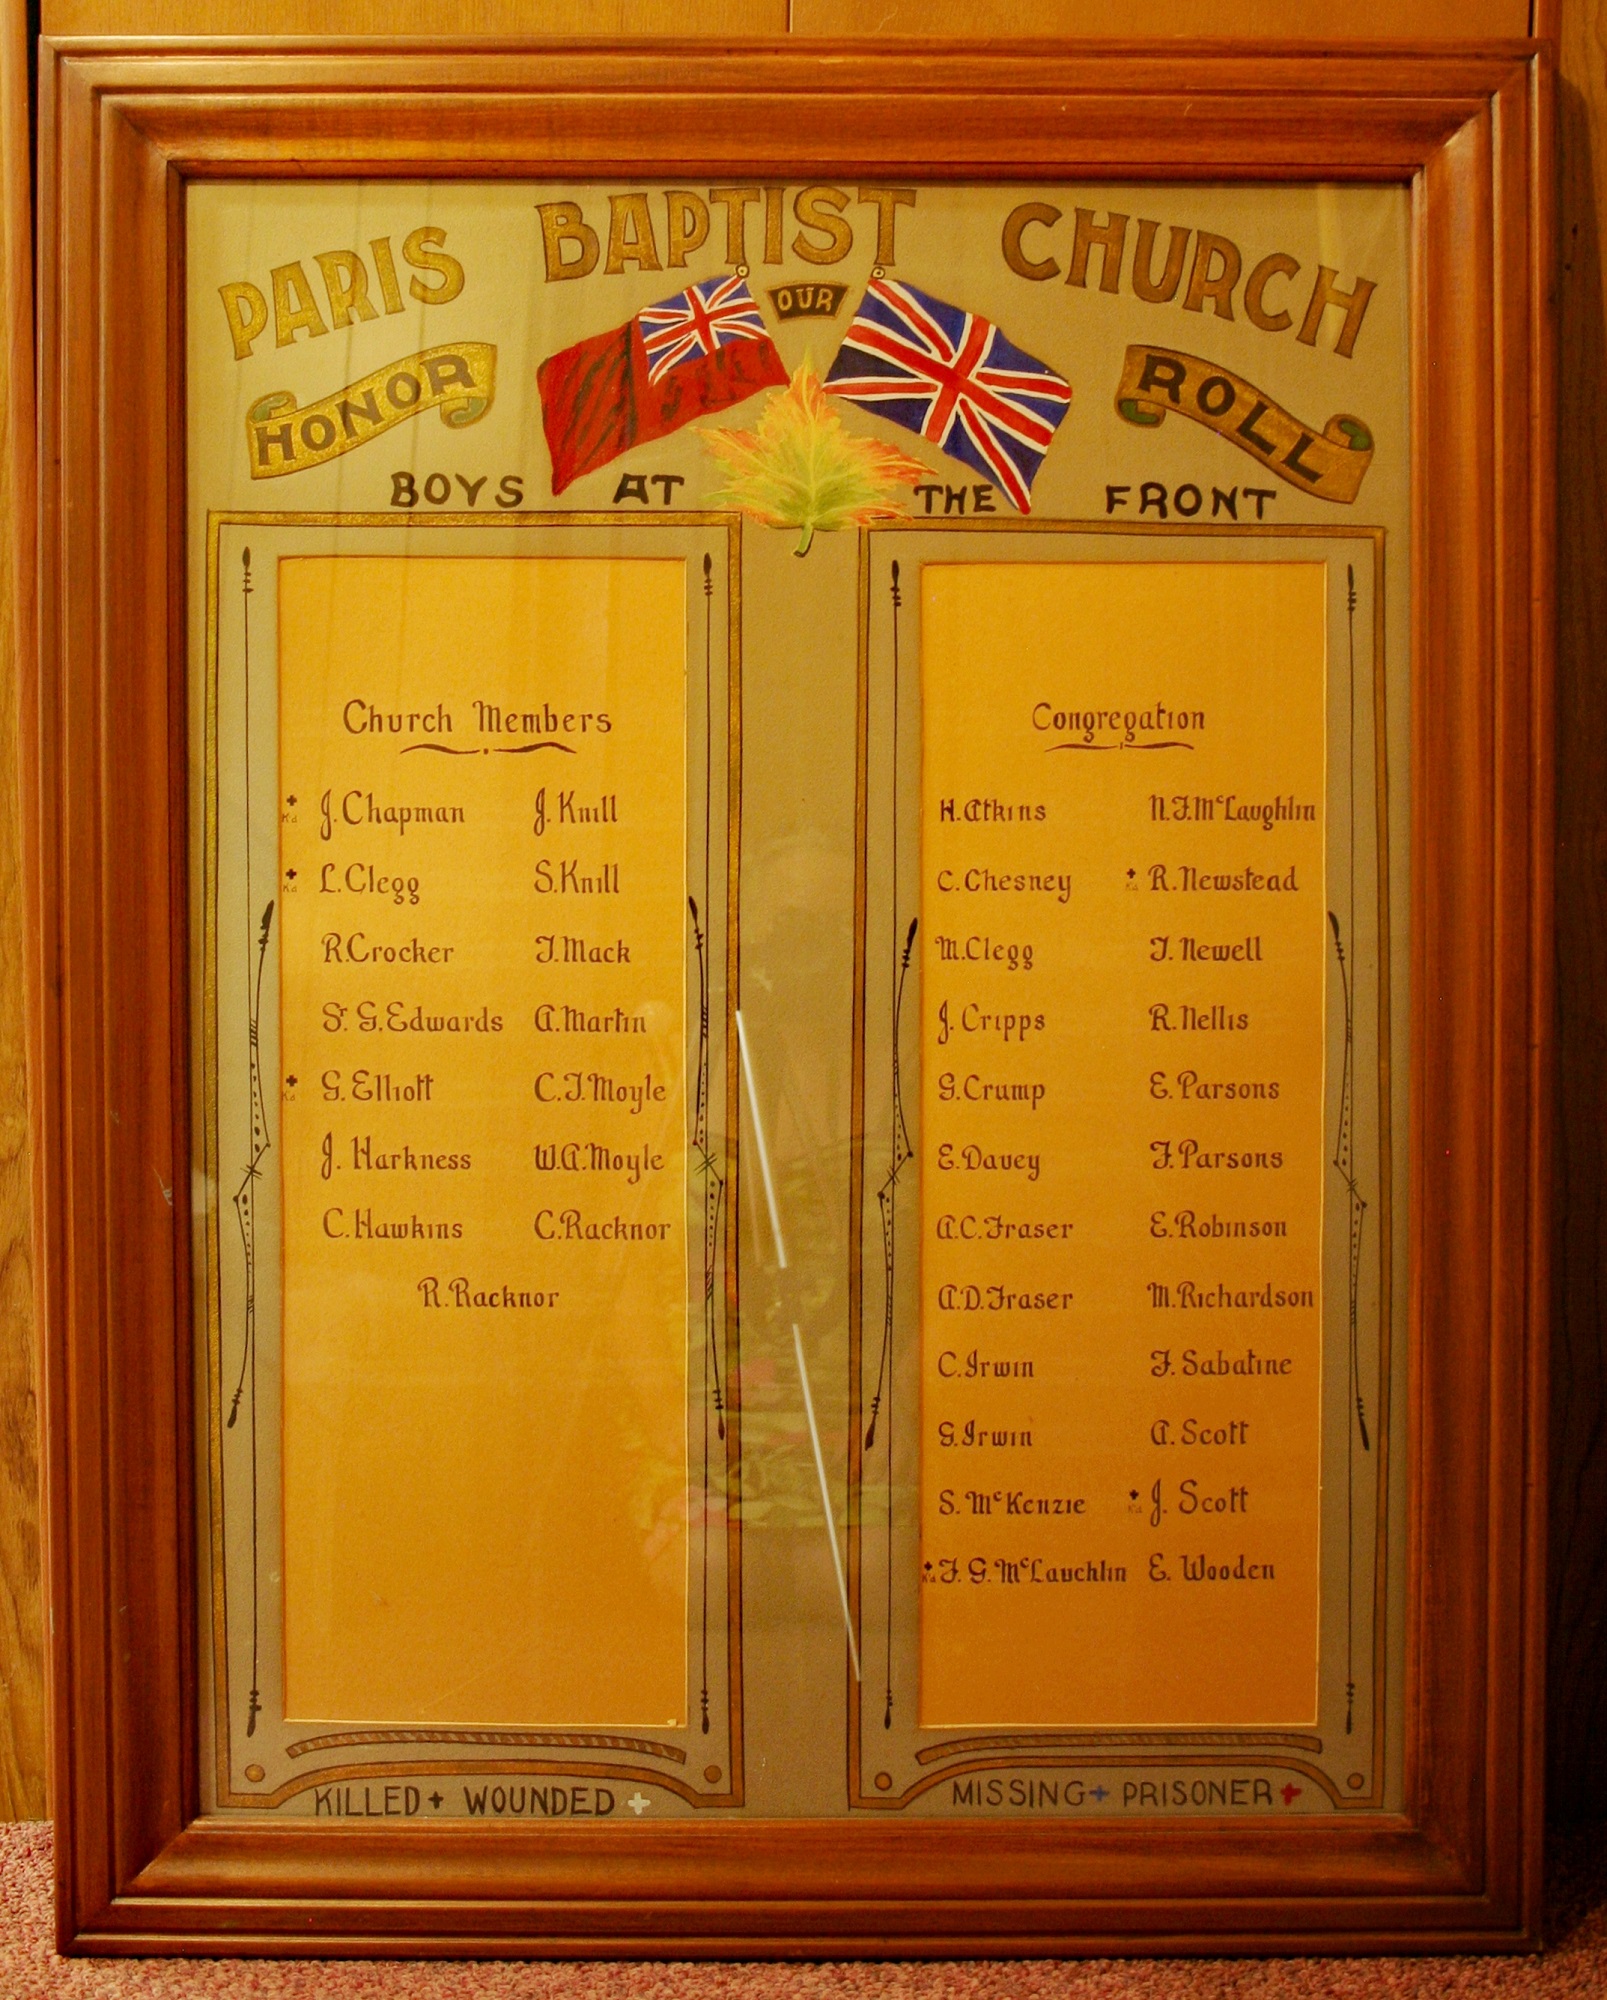 PARIS BAPTIST CHURCH
OUR
HONOR ROLL
BOYS AT THE FRONT
Church Members
+ Kd J. Chapman J. Knill
+ Kd L. Clegg S. Knill
R. Crocker T. Mack
Sr. G. Edwards A. Martin
+ Kd G. Elliott C. T. Moyle
J. Harkness W. A. Moyle
C. Hawkins C. Racknor
R. Racknor
Congregation
H. Atkins N. F. McLaughlin
C. Chesney + Kd R. Newstead
M. Clegg T. Newell
J. Cripps R. Nellis
G. Crump E. Parsons
E. Davey F. Parsons
A. C. Fraser E. Robinson
A. D. Fraser M. Richardson
C. Irwin F. Sabatine
G. Irwin A. Scott
S. McKenzie + Kd J. Scott
+ Kd F. G. McLauchlin E. Wooden
KILLED + WOUNDED +
MISSING + PRISONER +